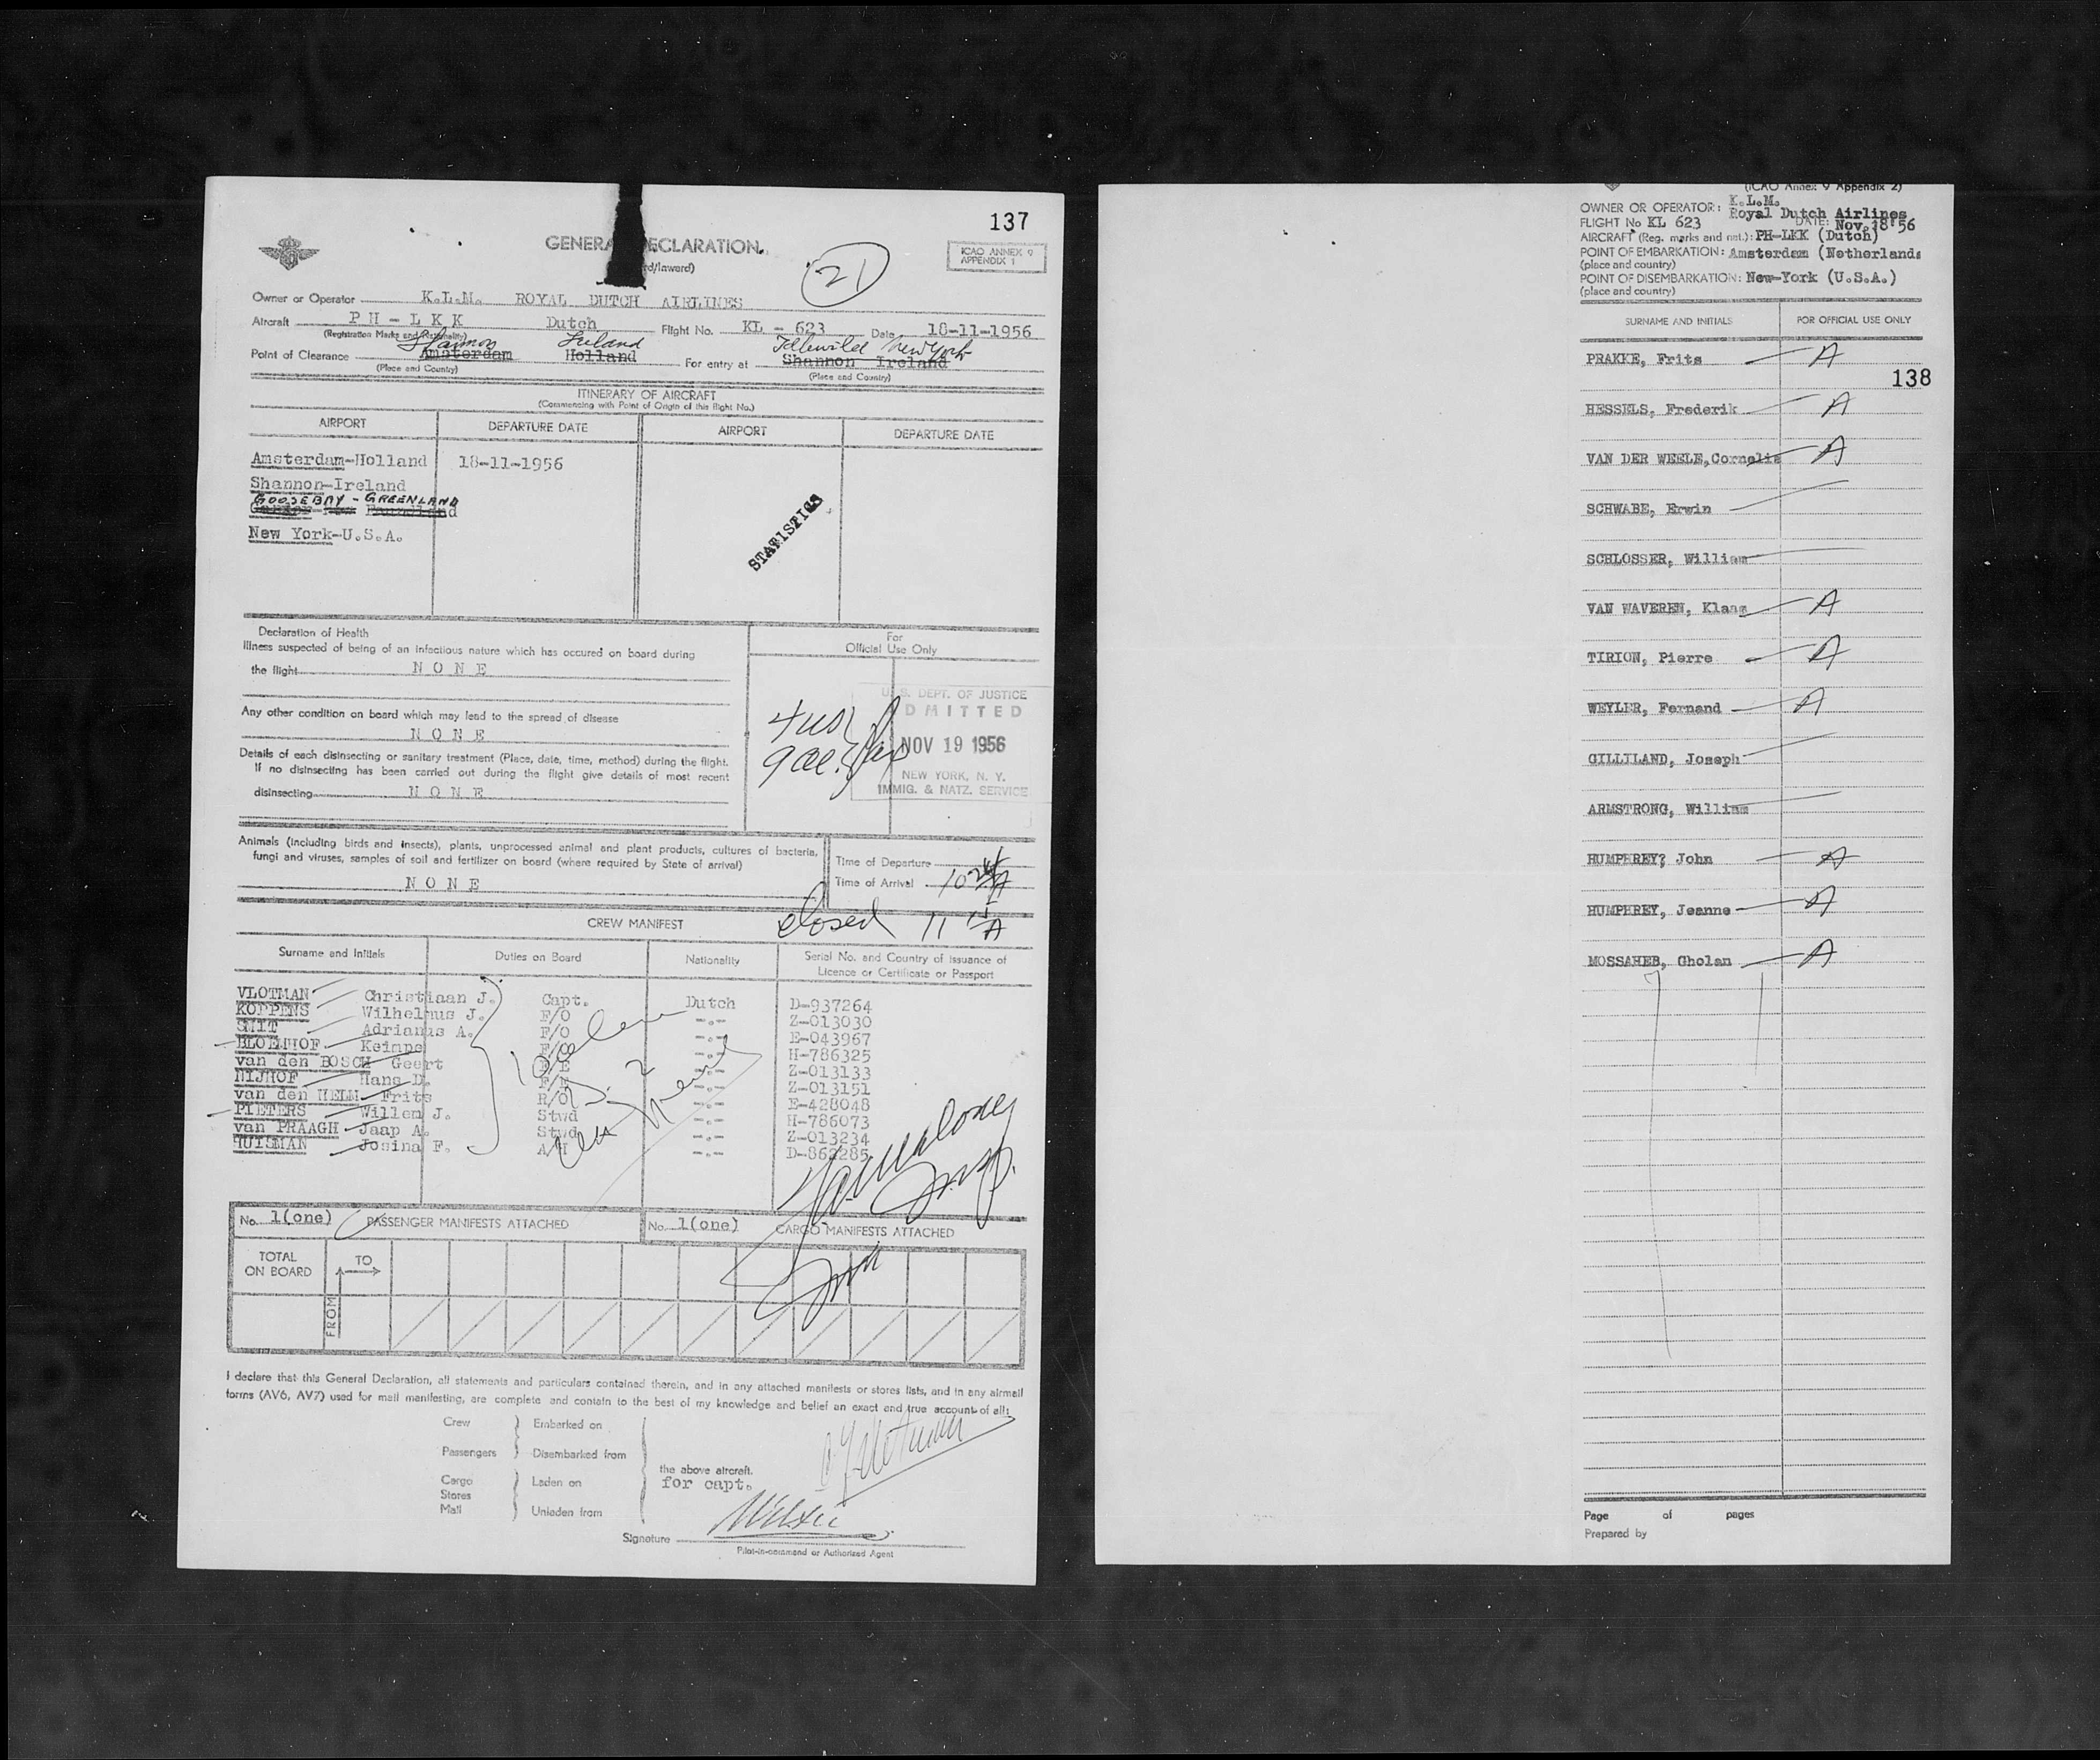 137
GENERA ECLARATION.
rd/Inward)
21
ICAO ANNEX 9
APPENDIX 1
Owner or Operator K.L.M. ROYAL DUTCH AIRLINES
Aircraft PH-LKK Dutch Flight No. KL - 623 Date 18-11-1956
(Registration Marks and Nationality)
Shannon Ireland Idlewild New York
Point of Clearance Amsterdam Holland For entry at Shannon Ireland
(Place and Country) (Place and Country)
ITINERARY OF AIRCRAFT
(Commencing with Point of Origin of this flight No.)
AIRPORT DEPARTURE DATE AIRPORT DEPARTURE DATE
Amsterdam-Holland 18-11-1956
Shannon-Ireland
GOOSEBAY - GREENLAND
New York-U.S.A.
STATISTICS
Declaration of Health
Illness suspected of being of an infectious nature which has occured on board during
the flight NONE
Any other condition on board which may lead to the spread of disease
NONE
Details of each disinsecting or sanitary treatment (Place, date, time, method) during the flight.
If no disinsecting has been carried out during the flight give details of most recent
disinsecting NONE
For
Official Use Only
U.S. DEPT. OF JUSTICE
DMITTED
NOV 19 1956
NEW YORK, N. Y.
IMMIG. & NATZ. SERVICE
Animals (including birds and insects), plants, unprocessed animal and plant products, cultures of bacteria,
fungi and viruses, samples of soil and fertilizer on board (where required by State of arrival)
NONE
Time of Departure
Time of Arrival
closed 11
CREW MANIFEST
Surname and Initials Duties on Board Nationality Serial No. and Country of Issuance of
Licence or Certificate or Passport
VLOTMAN Christiaan J. Capt. Dutch D-937264
KOPPENS Wilhelmus J. F/O -"- Z-013030
SMIT Adrianus A. F/O -"- E-043967
BLOEMHOF Keimpe -"- H-786325
van den BOSCH Geert -"- Z-013133
NIJHOF Hans D. -"- Z-013151
van den HELM Frits R/O -"- E-428048
PIETERS Willem J. Stwd -"- H-786073
van PRAAGH Jaap A. Stwd -"- Z-013234
HUISMAN Josina F. A/H -"- D-862285
No. 1(one) PASSENGER MANIFESTS ATTACHED No. 1(one) CARGO MANIFESTS ATTACHED
TOTAL
ON BOARD
TO
FROM
I declare that this General Declaration, all statements and particulars contained therein, and in any attached manifests or stores lists, and in any airmail
forms (AV6, AV7) used for mail manifesting, are complete and contain to the best of my knowledge and belief an exact and true account of all:
Crew Embarked on
Passengers Disembarked from
the above aircraft.
Cargo Laden on for capt.
Stores
Mail Unladen from
Signature
Pilot-in-command or Authorized Agent
(ICAO Annex 9 Appendix 2)
OWNER OR OPERATOR: K.L.M.
Royal Dutch Airlines
FLIGHT No KL 623 DATE: Nov.18'56
AIRCRAFT (Reg. marks and nat.): PH-LKK (Dutch)
POINT OF EMBARKATION: Amsterdam (Netherlands
(place and country)
POINT OF DISEMBARKATION: New-York (U.S.A.)
(place and country)
SURNAME AND INITIALS FOR OFFICIAL USE ONLY
PRAKKE, Frits A
138
HESSELS, Frederik A
VAN DER WEELE, Cornelis A
SCHWABE, Erwin
SCHLOSSER, William
VAN WAVEREN, Klaas A
TIRION, Pierre A
WEYLER, Fernand A
GILLILAND, Joseph
ARMSTRONG, William
HUMPHREY? John A
HUMPHREY, Jeanne A
MOSSAHEB, Gholan A
Page of pages
Prepared by